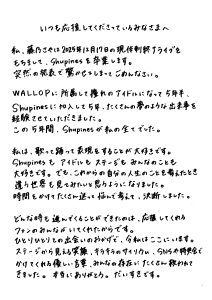 いつも応援してくださっているみなさまへ
私、藤乃さやは2025年12月17日の現体制終了ライブを
もちまして、Shupinesを卒業します。
突然の発表で驚かせてしまってごめんなさい。
WALLOPに所属して憧れのアイドルになって5年半、
Shupinesに加入して5年、たくさんの夢のような出来事を
経験させていただきました。
この5年間、Shupinesが私の全てでした。
私は、歌って踊って表現することが大好きです。
Shupinesも アイドルも ステージも みんなのことも
大好きです。でも、これからの自分の人生のことを考えたとき
違う世界も見てみたいと思うようになりました。
時間をかけてたくさん迷って悩んで考えて、決断しました。
どんな時も進んでくることができたのは、応援してくれる
ファンのみんながいてくれたからです。
ひとりひとりとの出会いのおかげで、今私はここにいます。
ステージから見える笑顔、キラキラのサイリウム、SNSや特典会で
かけてくれる優しい言葉、みんなの存在にたくさん救われて
きました。本当にありがとう。だいすきです。